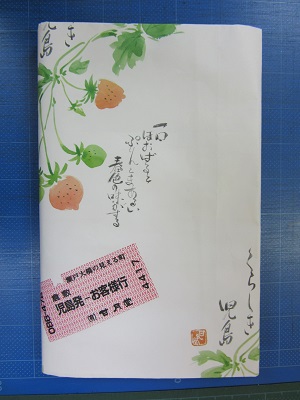 しき
児島
一口
ほおばると
春色の味がする
瀬戸大橋の見える町
倉敷
児島発→お客様行
(有) 甘月堂
4417
くらしき
児島